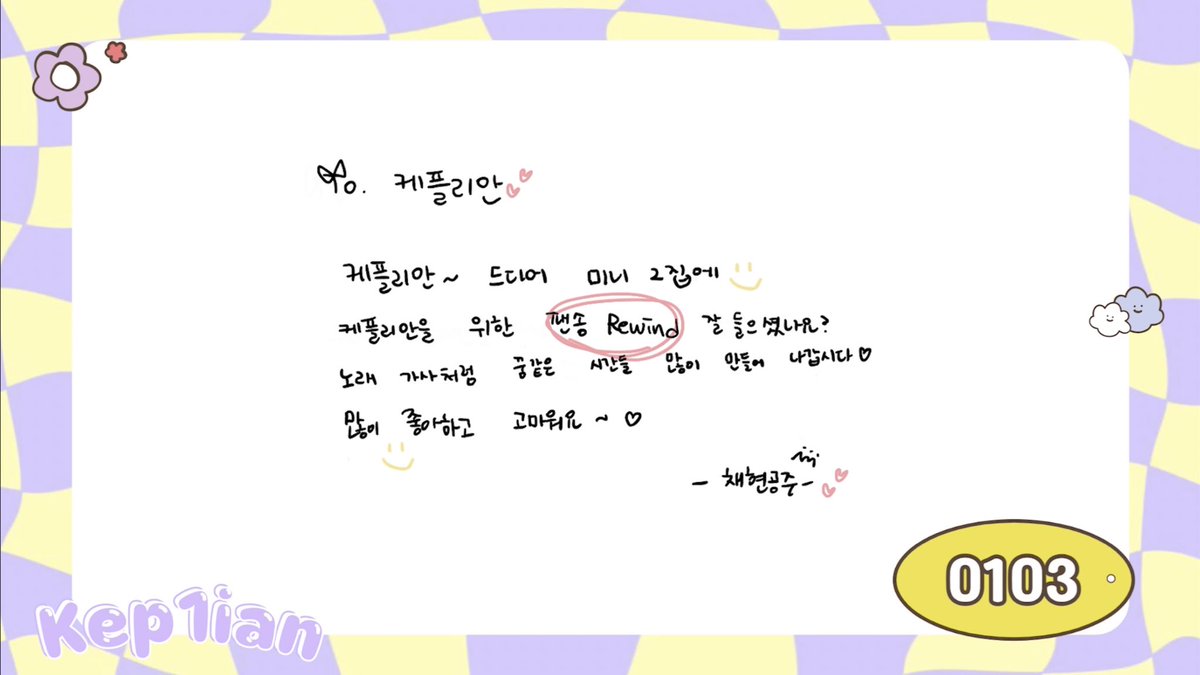 To. 케플리안♡♡
케플리안~ 드디어 미니 2집에
케플리안을 위한 팬송 Rewind 잘 들으셨나요?
노래 가사처럼 꿈같은 시간들 많이 만들어 나갑시다♡
많이 좋아하고 고마워요~♡
- 채현공주 -♡♡
Kep1ian
0103